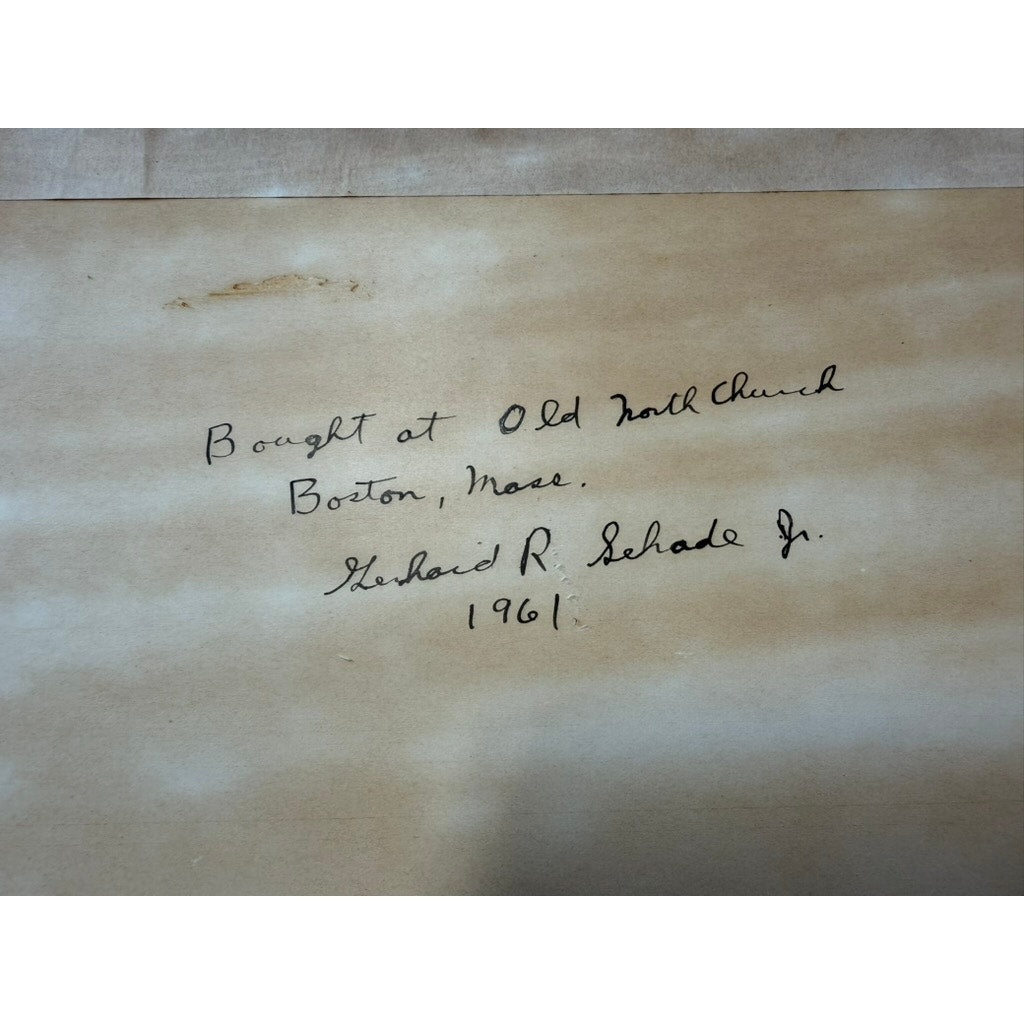 Bought at Old North Church
Boston, Mass.
Gerhard R. Schade Jr.
1961.